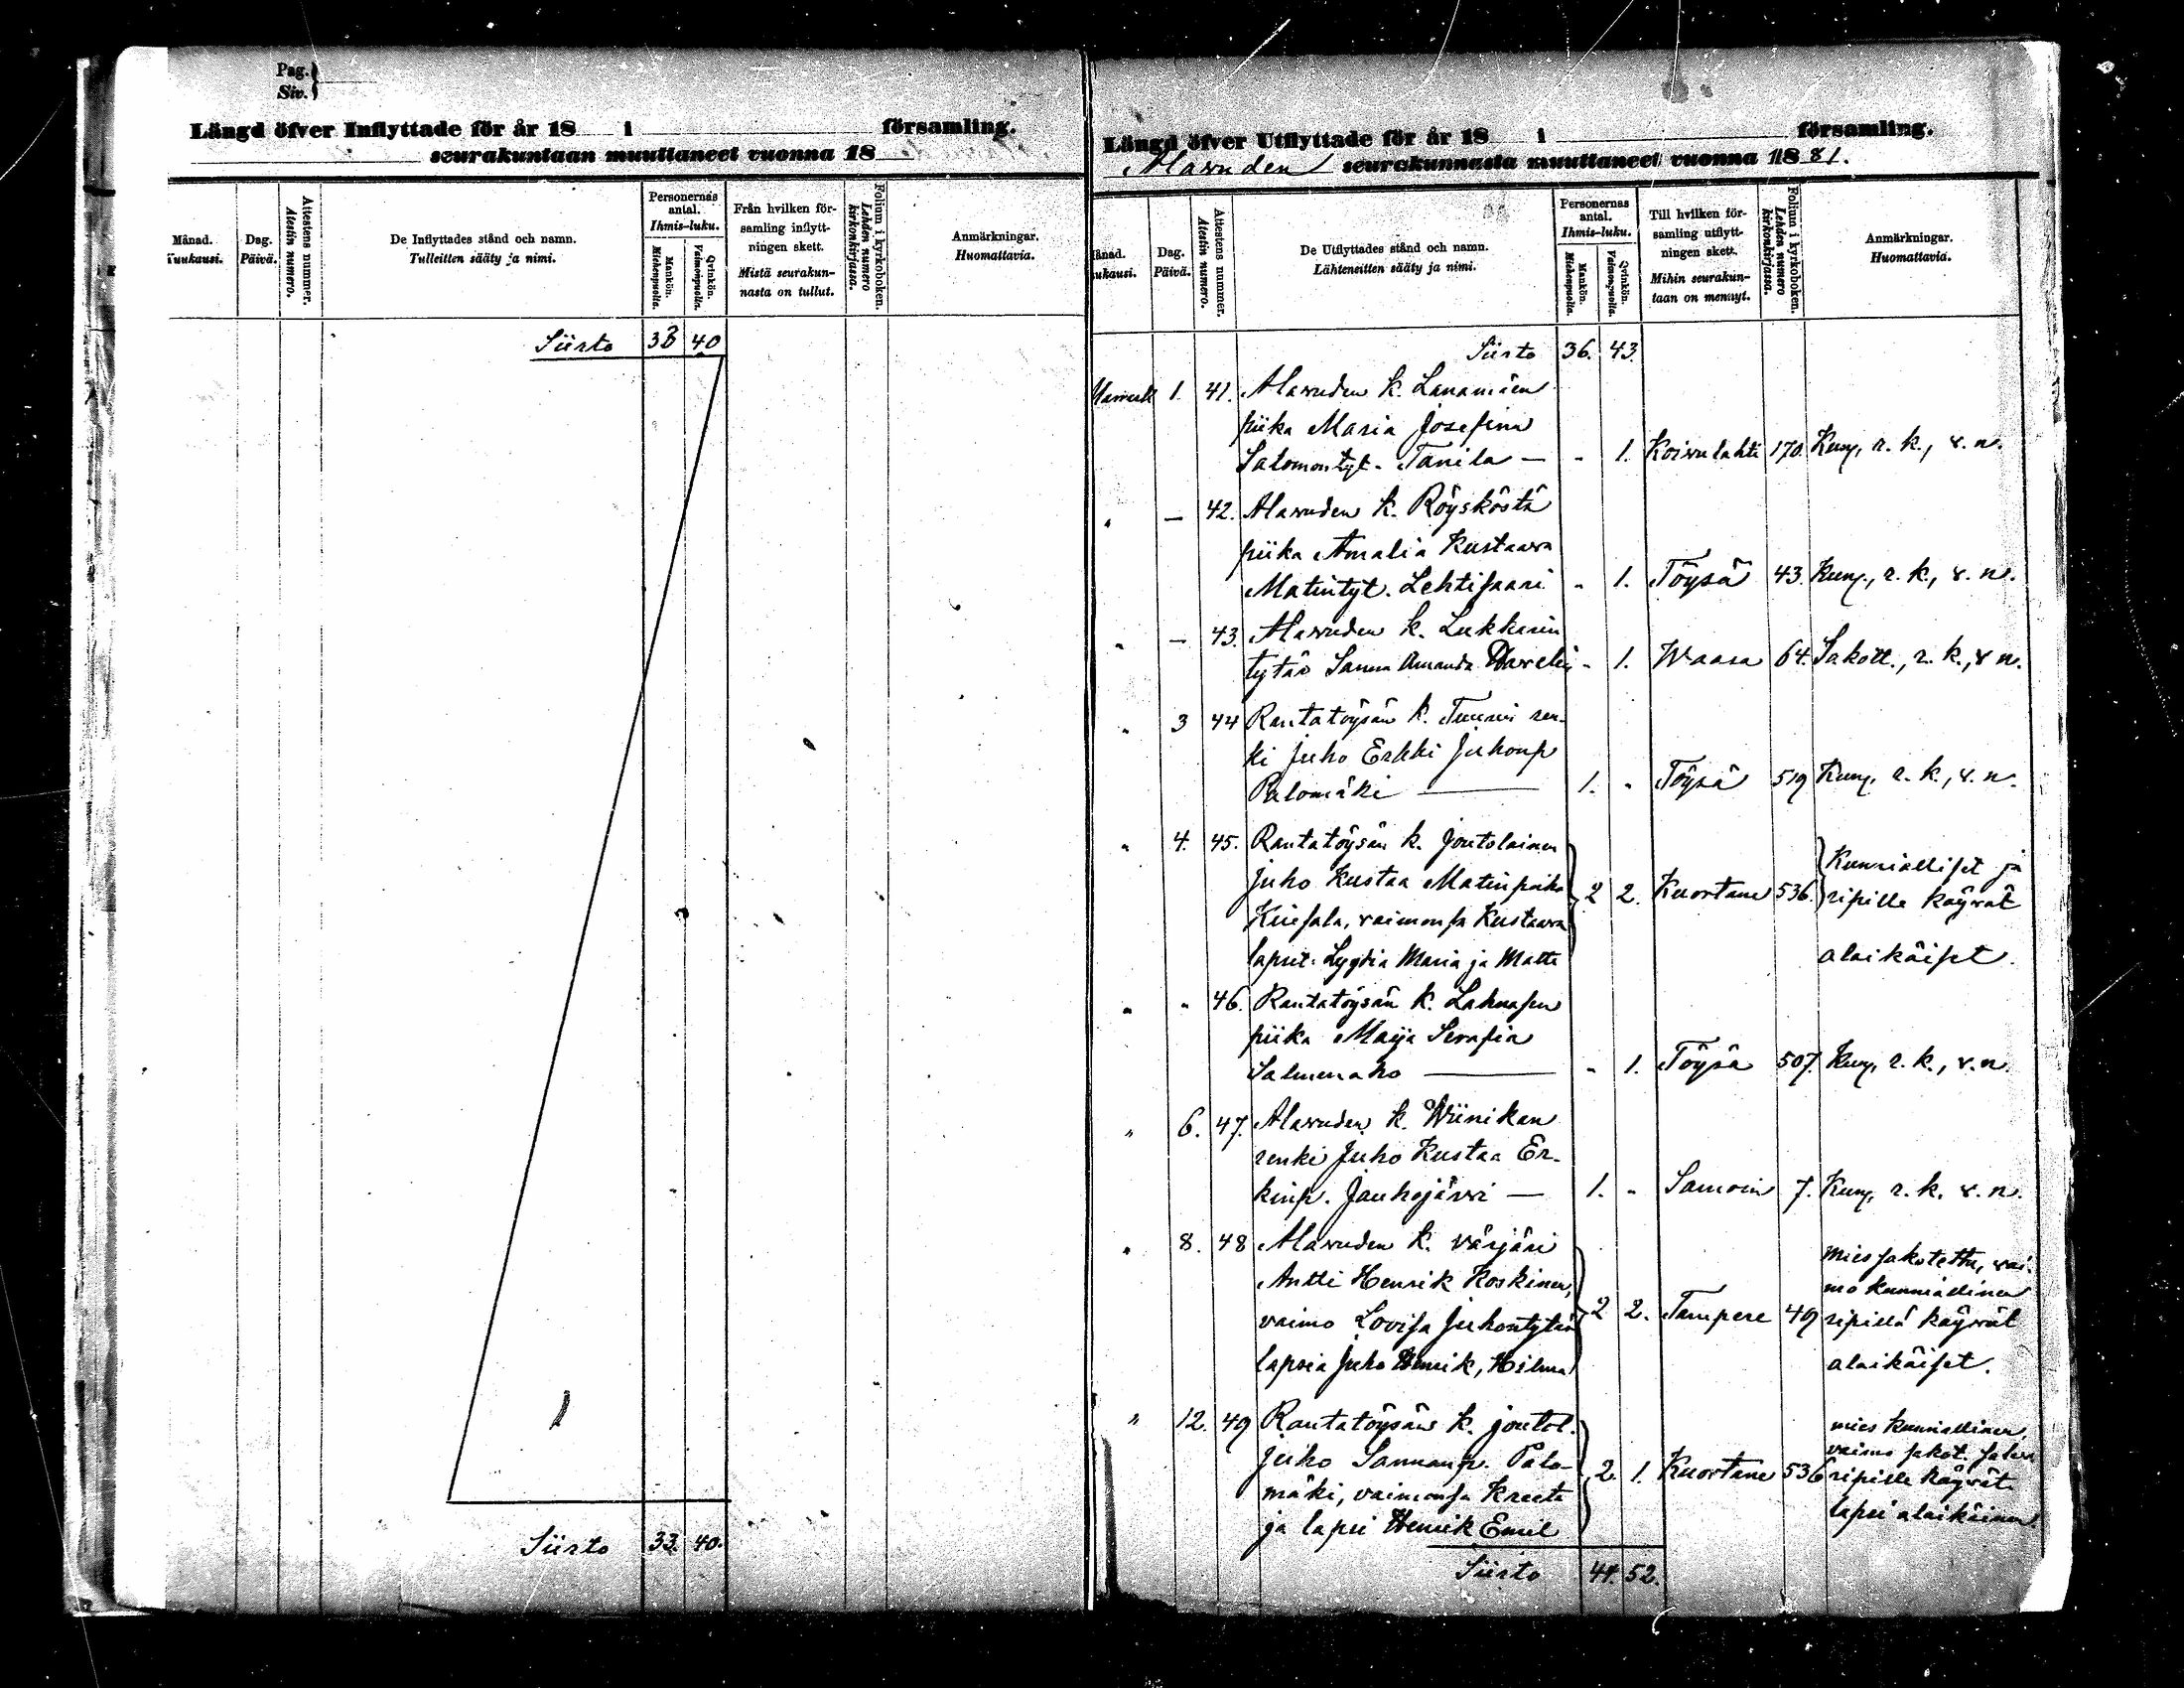 Pag.
Siv.
Längd öfver Inflyttade för år 18 i församling.
seurakuntaan muuttaneet vuonna 18
Månad.
Kuukausi.
Dag.
Päivä.
Attestens nummer.
Atestin numero.
De Inflyttades stånd och namn.
Tulleitten sääty ja nimi.
Personernas antal.
Ihmis-luku.
Mankön.
Miehenpuolia.
Qvinkön.
Vaimonpuolia.
Från hvilken för-
samling inflytt-
ningen skett.
Mistä seurakun-
nasta on tullut.
Folium i kyrkoboken.
Lehden numero
kirkonkirjassa.
Anmärkningar.
Huomattavia.
Siirto 33 40
Siirto 33. 40.
Längd öfver Utflyttade för år 18 i församling.
Alavuden seurakunnasta muuttaneet vuonna 1881.
Månad.
Kuukausi.
Dag.
Päivä.
Attestens nummer.
Atestin numero.
De Utflyttades stånd och namn.
Lähteneitten sääty ja nimi.
Personernas antal.
Ihmis-luku.
Mankön.
Miehenpuolia.
Qvinkön.
Vaimonpuolia.
Till hvilken för-
samling utflytt-
ningen skett.
Mihin seurakun-
taan on mennyt.
Folium i kyrkoboken.
Lehden numero
kirkonkirjassa.
Anmärkningar.
Huomattavia.
Siirto 36. 43.
1. 41. Alavuden k. Lanamäen
piika Maria Josefina
Salomontyt. Tanila — - 1. Koivulahti 170. Kunn., r. k., v. n.
" — 42. Alavuden k. Röysköstä
piika Amalia Kustaava
Matintyt. Lehtisaari - 1. Töysä 43. Kunn., r. k., v. n.
" — 43. Alavuden k. Lukkarin
tytär Sanna Amanda - 1. Waasa 64. Sakott., r. k., v. n.
" 3 44 Rantatöysän k. Tuurin ren-
ki Juho Erkki Juhonp
Palomäki — 1. - Töysä 519 Kunn., r. k., v. n.
" 4. 45. Rantatöysän k. Joutolainen
Juho Kustaa Matinpoika
vaimonsa Kustaava
lapset: Lyydia Maria ja Matti
2 2. Kuortane 536.
Kunnialliset ja
ripille käyvät
alaikäiset.
" " 46. Rantatöysän k. Lahnasen
piika Maija Serafia
Salmenaho — - 1. Töysä 507. Kunn., r. k., v. n.
" 6. 47. Alavuden k. Wiinikan
renki Juho Kustaa Er-
kinp. Jauhojärvi — 1. - Samoin 7. Kunn., r. k. v. n.
" 8. 48 Alavuden k. värjäri
Antti Henrik Koskinen,
vaimo Lovisa Juhontytär
lapsia Juho Henrik, Hilma
2 2. Tampere 49
mies sakotettu, vai-
mo kunniallinen
ripillä käyvät
alaikäiset.
" 12. 49 Rantatöysän k. joutol.
Juho Sannanp. Palo-
mäki, vaimonsa Kreeta
ja lapsi Henrik Emil
2. 1. Kuortane 536
mies kunniallinen,
vaimo sakot.
ripille käyvät
lapsi alaikäinen.
Siirto 44. 52.